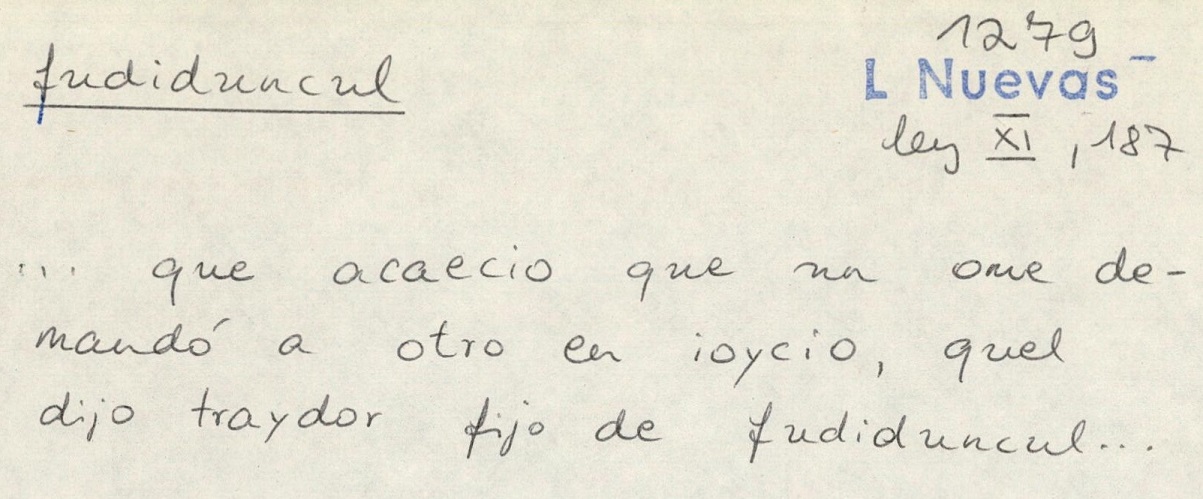 1279
fudiduncul
L Nuevas
ley XI, 187
... que acaecio que un ome de-
mandó a otro en ioycio, quel
dijo traydor fijo de fudiduncul...